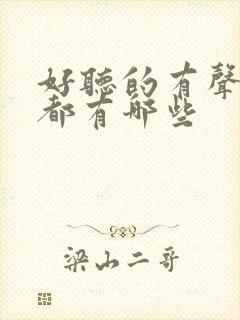 好聽的有聲
都有哪些
梁山二哥